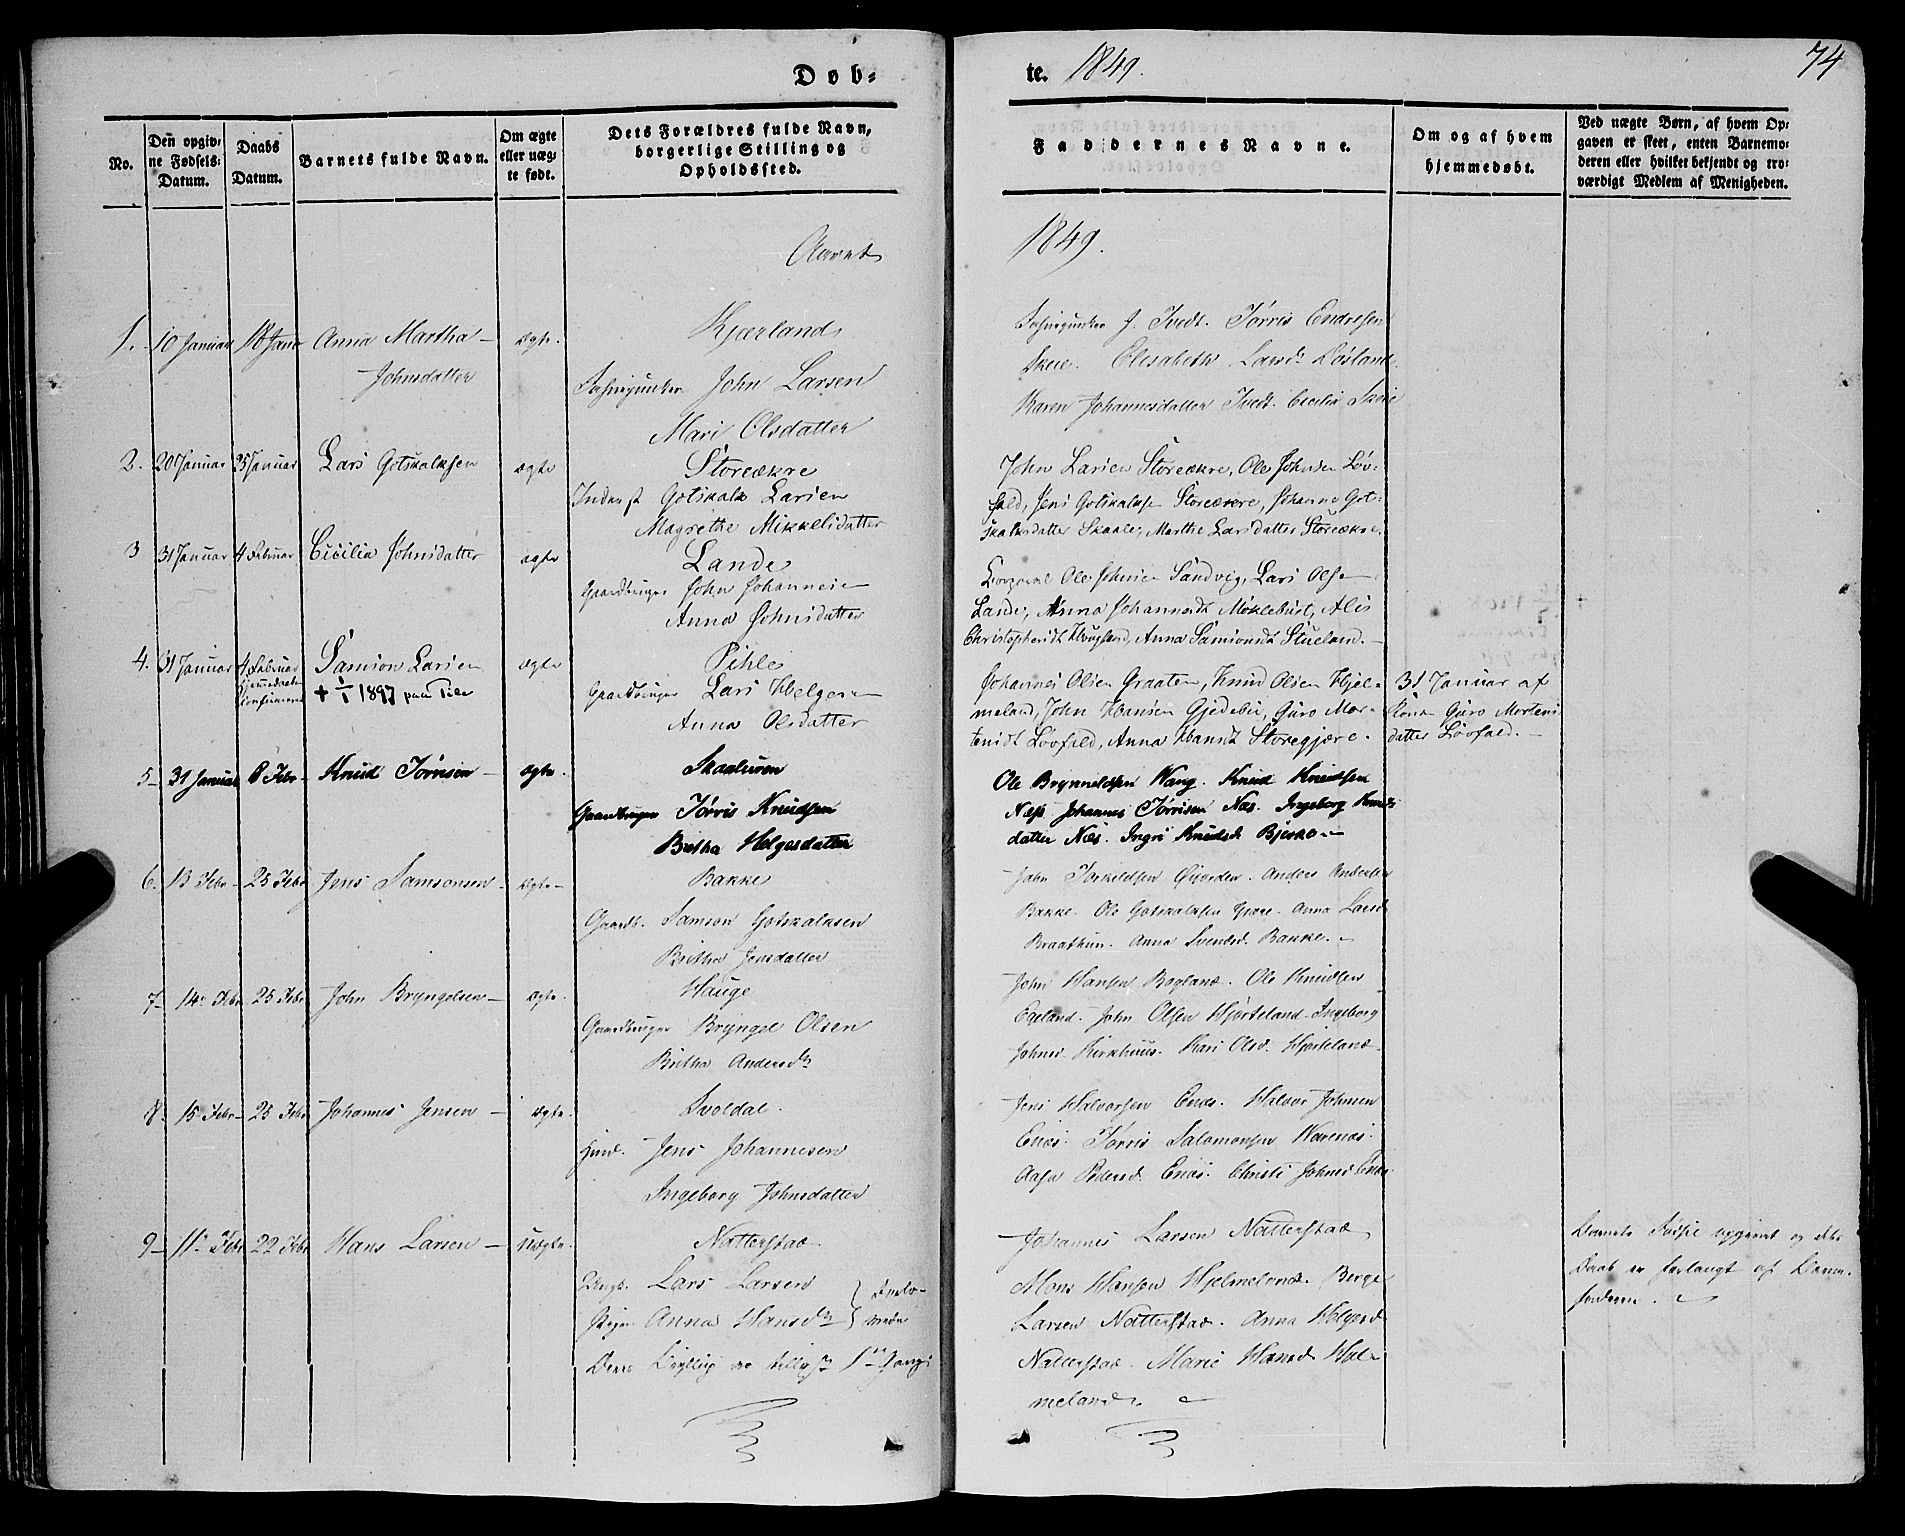 Døb=
te. 1849.
74
No.
Den opgiv=
ne Fødsels=
Datum.
Daabs
Datum.
Barnets fulde Navn.
Om ægte
eller uæg=
te født.
Dets Forældres fulde Navn,
borgerlige Stilling og
Opholdssted.
Faddernes Navne.
Om og af hvem
hjemmedøbt.
Ved uægte Børn, af hvem Op=
gaven er skeet, enten Barnemo=
deren eller hvilket bekjendt og tro=
værdigt Medlem af Menigheden.
Aaret
1849.
1. 10 Januar 18 Janr Anna Martha
Johnsdatter
ægte.
Kjærland
John Larsen
Mari Olsdatter
J. Tvedt. Tørris Endresen
Skeie. Elisabeth Larsd.
Karen Johannesdatter Tvedt. Cecilia Skeie
2. 20 Januar 25 Januar Lars Gotskalksen ægte
Storeækre
Inderst Gotskalk Larsen
Magrethe Mikkelsdatter
John Larsen Storeækre, Ole Johnsen Løv=
fald, Jens Gotskalksen Storeækre, Johanne Got=
skalksdatter Skaale, Marthe Larsdatter Storeækre.
3 31 Januar 4 Februar Cicilia Johnsdatter ægte
Lande
Gaardbruger John Johannesen
Anna Johnsdatter
Ole Johnsen Sandvig, Lars Olsen
Lande, Anna Johannesdt Møklebust, Alis
Christophersdt Hougland, Anna Samsonsdt Stueland.
4. 31 Januar 4 Februar
hjemmedaaben
Confirmeret
Samson Larsen
+ 1/1 1897 paa Pile
ægte
Pihle
Gaardbruger Lars Helgesen
Anna Olsdatter
Johannes Olsen Graaten, Knud Olsen Hjel=
meland, John Hansen Gjedebø, Guro Mor=
tensdt Løvfald, Anna Hansdt Storegjære.
31 Januar af
Konen Guro Mortens
datter Løvfald.
5 31 Januar 8 Febr Knud Tørrisen ægte.
Skaaluren
Gaardbruger Tørris Knudsen
Britha Helgesdatter
Ole Brynnildsen Vaag. Knud Knudsen
Næs. Johannes Tørrisen Næs. Ingeborg Knuds
datter Næs. Ingri Knudsd.
6. 13 Febr 25 Febr Jens Samsonsen ægte
Bakke
Gaardb. Samson Gotskalksen
Britha Jensdatter
John Torkildsen. Anders Andersen
Bakke. Ole Gotskalksen. Anna Larsd
Braathun. Anna Svendsd. Bakke.
7 14 Febr 25 Febr John Bryngelsen ægte.
Hauge
Gaardbruger Bryngel Olsen
Britha Andersdtr
John Hansen. Ole Knudsen
Egeland. John Olsen Hjorteland. Ingeborg
Johnsd. Kirkhuus. Kari Olsd. Hjorteland.
8. 15 Febr 25 Febr Johannes Jensen ægte.
Svoldal.
Huusm. Jens Johannesen
Ingeborg Johnsdatter
Jens Halvorsen Enæs. Halvor Johnsen
Enæs. Tørris Salomonsen.
Enæs. Christi Johnsd Enæs
9 11 Febr 22 Febr Hans Larsen uægte.
Natterstad
Ungk. Lars Larsen
Pigen Anna Hansdtr } Forlo=
vede
Johannes Larsen Natterstad
Mons Hansen Hjelmeland. Berge
Larsen Natterstad. Anna Helgesd
Natterstad. Marie Hansd Hjel=
meland.
Barnets Fødsel opgivet og dets
Daab er forlangt af Barne=
faderen.